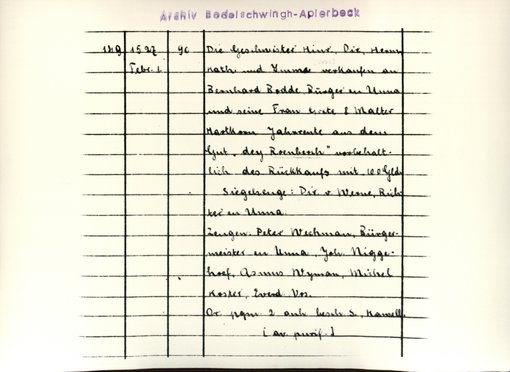 Archiv Bodelschwingh-Aplerbeck
149 1527 96 Die Geschwister Hinr., Dir., Herm,
Febr. 1 Kath und Emma verkaufen an
Bernhard Bodde Bürger in Unna
und seine Frau Grete 8 Malter
Hartkorn Jahrrente aus dem
Gut „dey Roenbersch" vorbehalt-
lich des Rückkaufs mit 100 Gld.
Siegelzeuge: Dir. v. Werne, Rich-
ter in Unna.
Zeugen: Peter Wechman, Bürger-
meister in Unna, Joh. Nigge-
hoef, Asmus Wyman, Michel
Koster, Everd Vos.
Or. pgm. 2 anh. besch. S.,